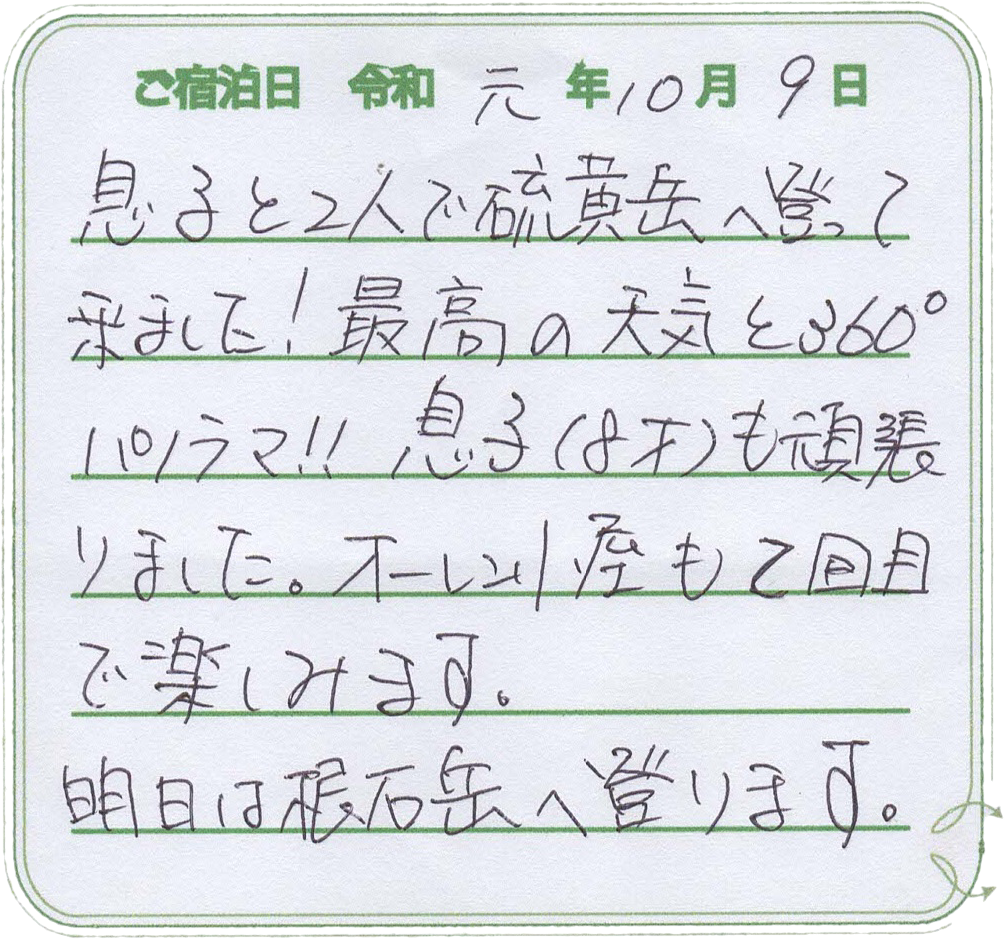 ご宿泊日 令和 元 年 10 月 9 日
息子と2人で硫黄岳へ登って
来ました！最高の天気と360°
パノラマ!! 息子(8才)も頑張
りました。オーレン小屋も2回目
で楽しみます。
明日は根石岳へ登ります。